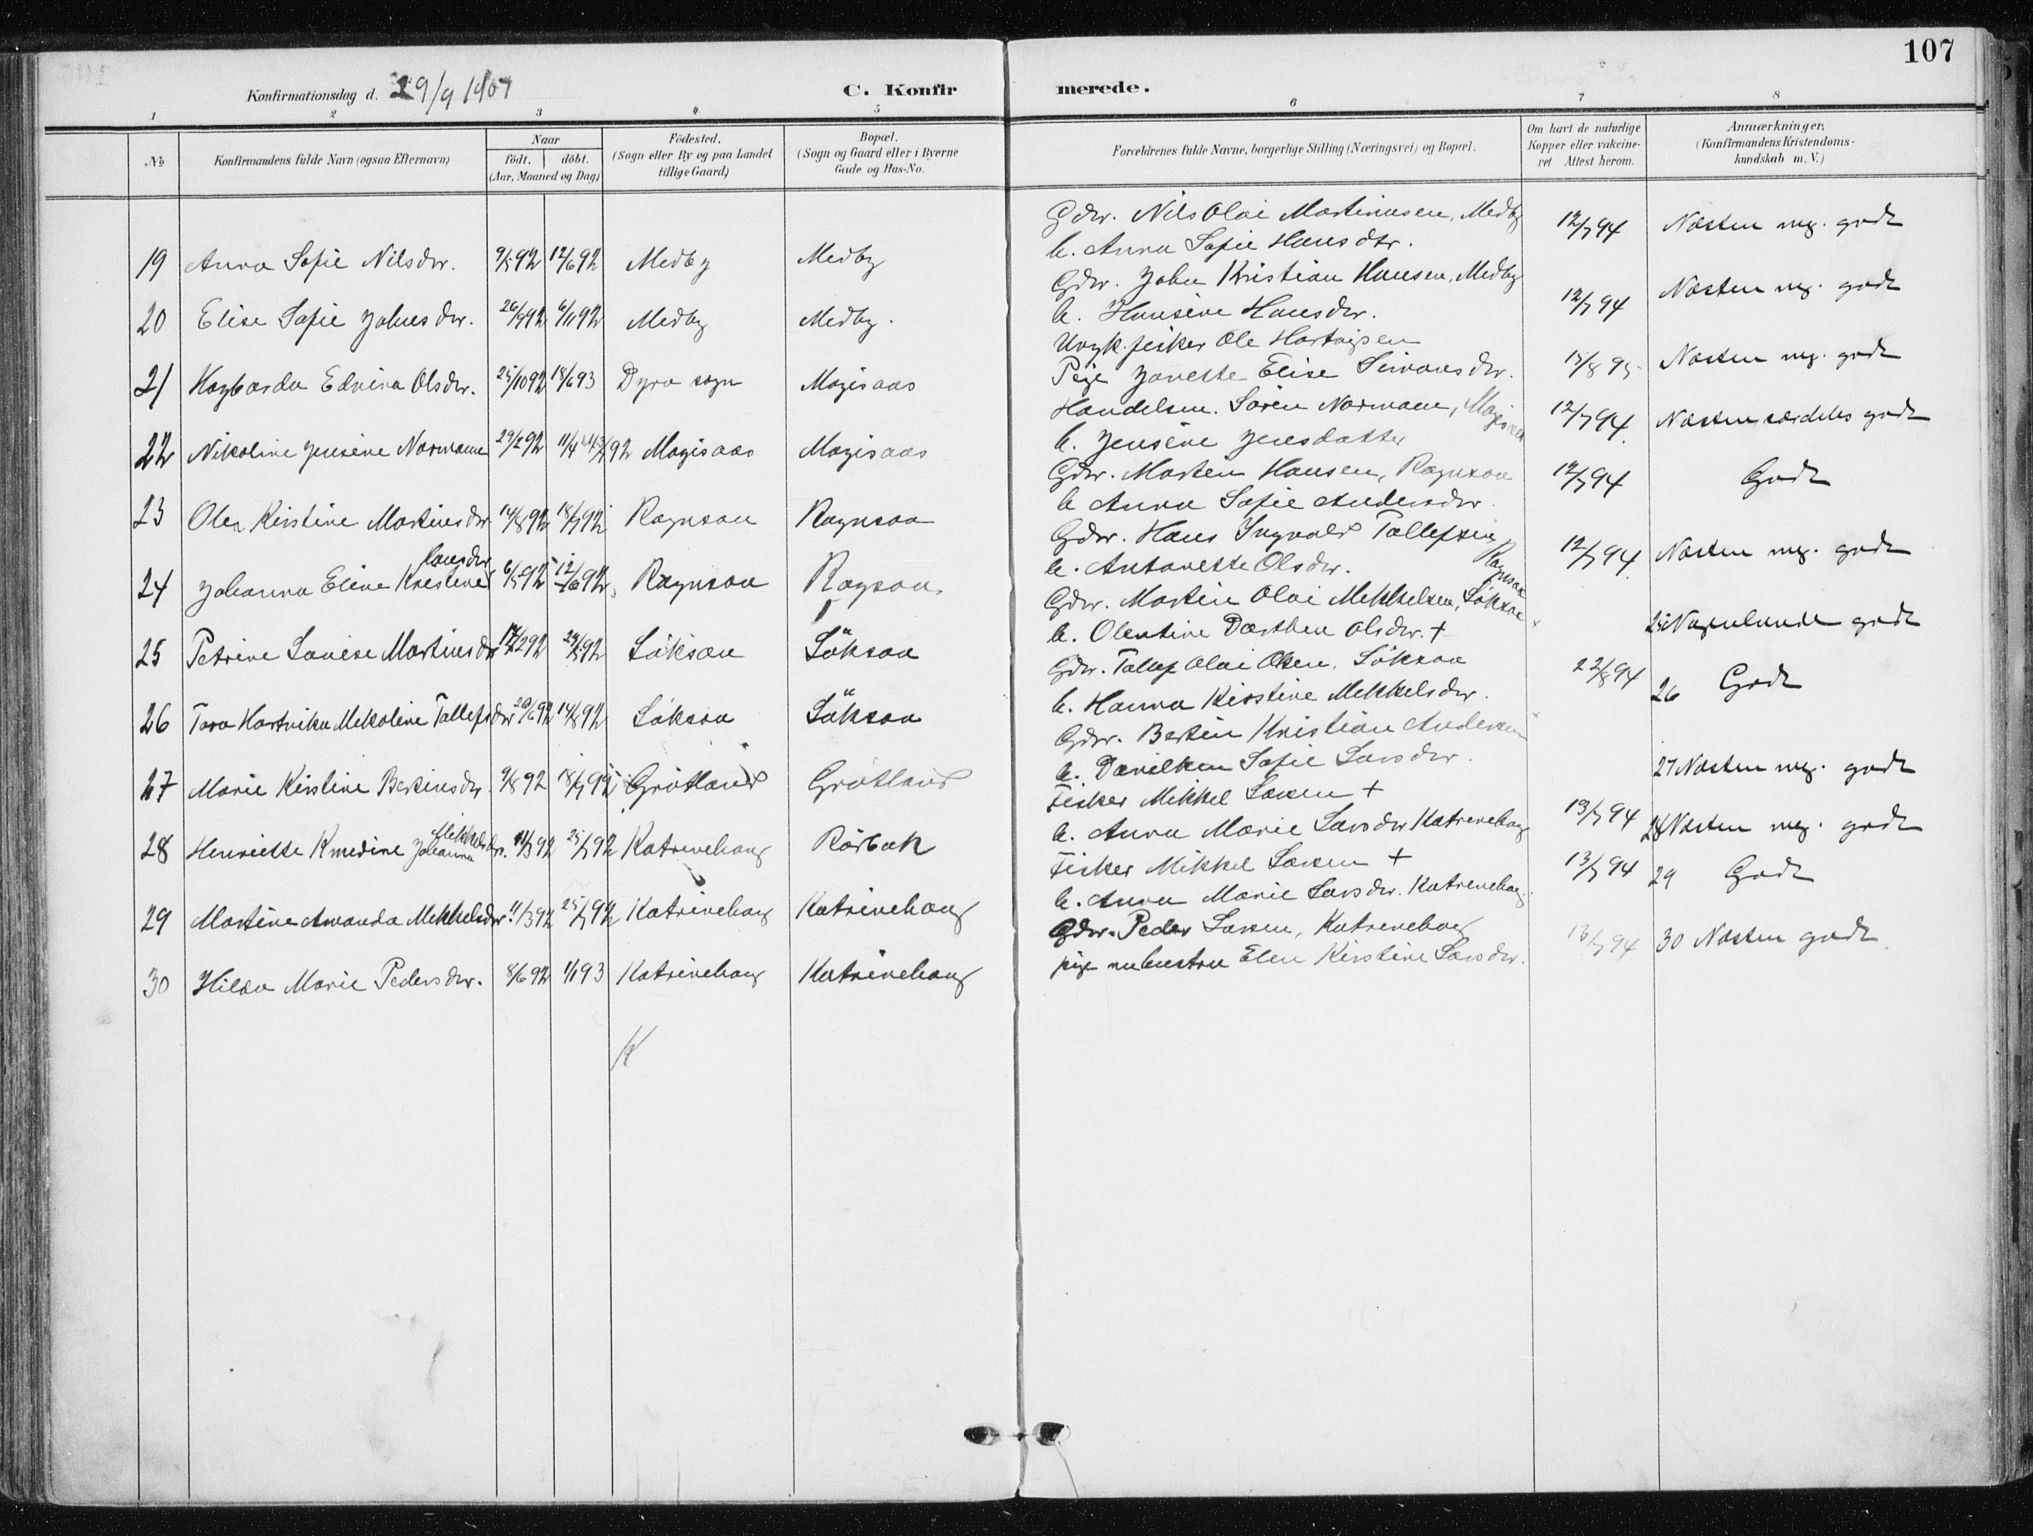 107
Konfirmationsdag d. 29/9 1907
C. Konfirmerede.
1 2 3 4 5 6 7 8
No
Konfirmandens fulde Navn (ogsaa Efternavn)
Naar
födt. döbt.
(Aar, Maaned og Dag)
Födested.
(Sogn eller By og paa Landet
tillige Gaard)
Bopæl.
(Sogn og Gaard eller i Byerne
Gade og Hus-No.
Forældrenes fulde Navne, borgerlige Stilling (Næringsvei) og Bopæl.
Om havt de naturlige
Kopper eller vakcine-
ret Attest herom.
Anmærkninger.
(Konfirmandens Kristendoms-
kundskab m. V.)
19 Anna Sofie Nilsdtr. 9/5 92 12/6 92 Medby Medby
Gdbr. Nils Olai Martinusen, Medby
h. Anna Sofie Hansdtr. 12/7 94 Næsten mg. godt
20 Elise Sofie Johnsdtr. 26/9 92 6/11 92 Medby Medby.
Gdbr. John Kristian Hansen, Medby
h. Hansine Hansdtr. 12/7 94 Næsten mg. godt
21 Hagbarda Edvina Olsdtr. 25/10 92 18/6 93 Dyrø sogn Mogisaas
Ungk. fisker Ole Hartvigsen
Pige Janette Elise Simonsdtr. 15/8 95 Næsten mg. godt
22 Nikoline Jensine Normann 29/2 92 Mogisaas Mogisaas
Handelsm. Sören Normann, Mogisaas
h. Jensine Jensdatter 12/7 94 Næsten særdeles godt
23 Olea Kirstine Martinsdtr 14/8 92 18/9 92 Rognsaa Rognsaa
Gdbr. Martin Hansen, Rognsaa
h Anna Sofie Andersdtr. 12/7 94 Godt
24 Johanna Eline Kristine Hansdtr 6/5 92 12/6 92 Rognsaa Rogsaa.
Gdbr. Hans Ingvald Tollefsen Rognsaa
h. Antonette Olsdtr. 12/7 94 Næsten mg. godt
25 Petrine Lovise Martinsdtr 92 92 Löksaa Löksaa
Gdbr. Martin Olai Mekkelsen, Löksaa
h. Olentine Dorthea Olsdtr. + 25 Nogenlunde godt
26 Tora Hartvika Mekoline Tollefsdtr 20/6 92 14/8 92 Löksaa Löksaa
Gdbr. Tollef Olai Olsen, Löksaa
h. Hanna Kirstine Mekkelsdtr. 22/8 94 26 Godt
27 Marie Kirstine Bertinsdtr 9/8 92 18/9 92 Grötland Grötland
Gdbr. Bertin Kristian Andersen
h. Davilken Sofie Larsdtr. 27 Næsten mg. godt
28 Henriette Kmedine Johanna Mikkelsdtr. 11/3 92 25/7 92 Katrinehaug Rörbak
Fisker Mikkel Larsen +
h. Anna Marie Larsdtr Katrinehaug 13/7 94 28 Næsten mg. godt
29 Martine Amanda Mekkelsdtr. 11/3 92 25/7 92 Katrinehaug Katrinehaug
Fisker Mikkel Larsen +
h. Anna Marie Larsdtr. Katrinehaug 13/7 94 29 Godt
30 Hilda Marie Pedersdtr. 8/6 92 1/1 93 Katrinehaug Katrinehaug
Gdbr. Peder Larsen, Katrinehaug
pige nu hustru Elen Kirstine Larsdtr. 13/7 94 30 Næsten godt